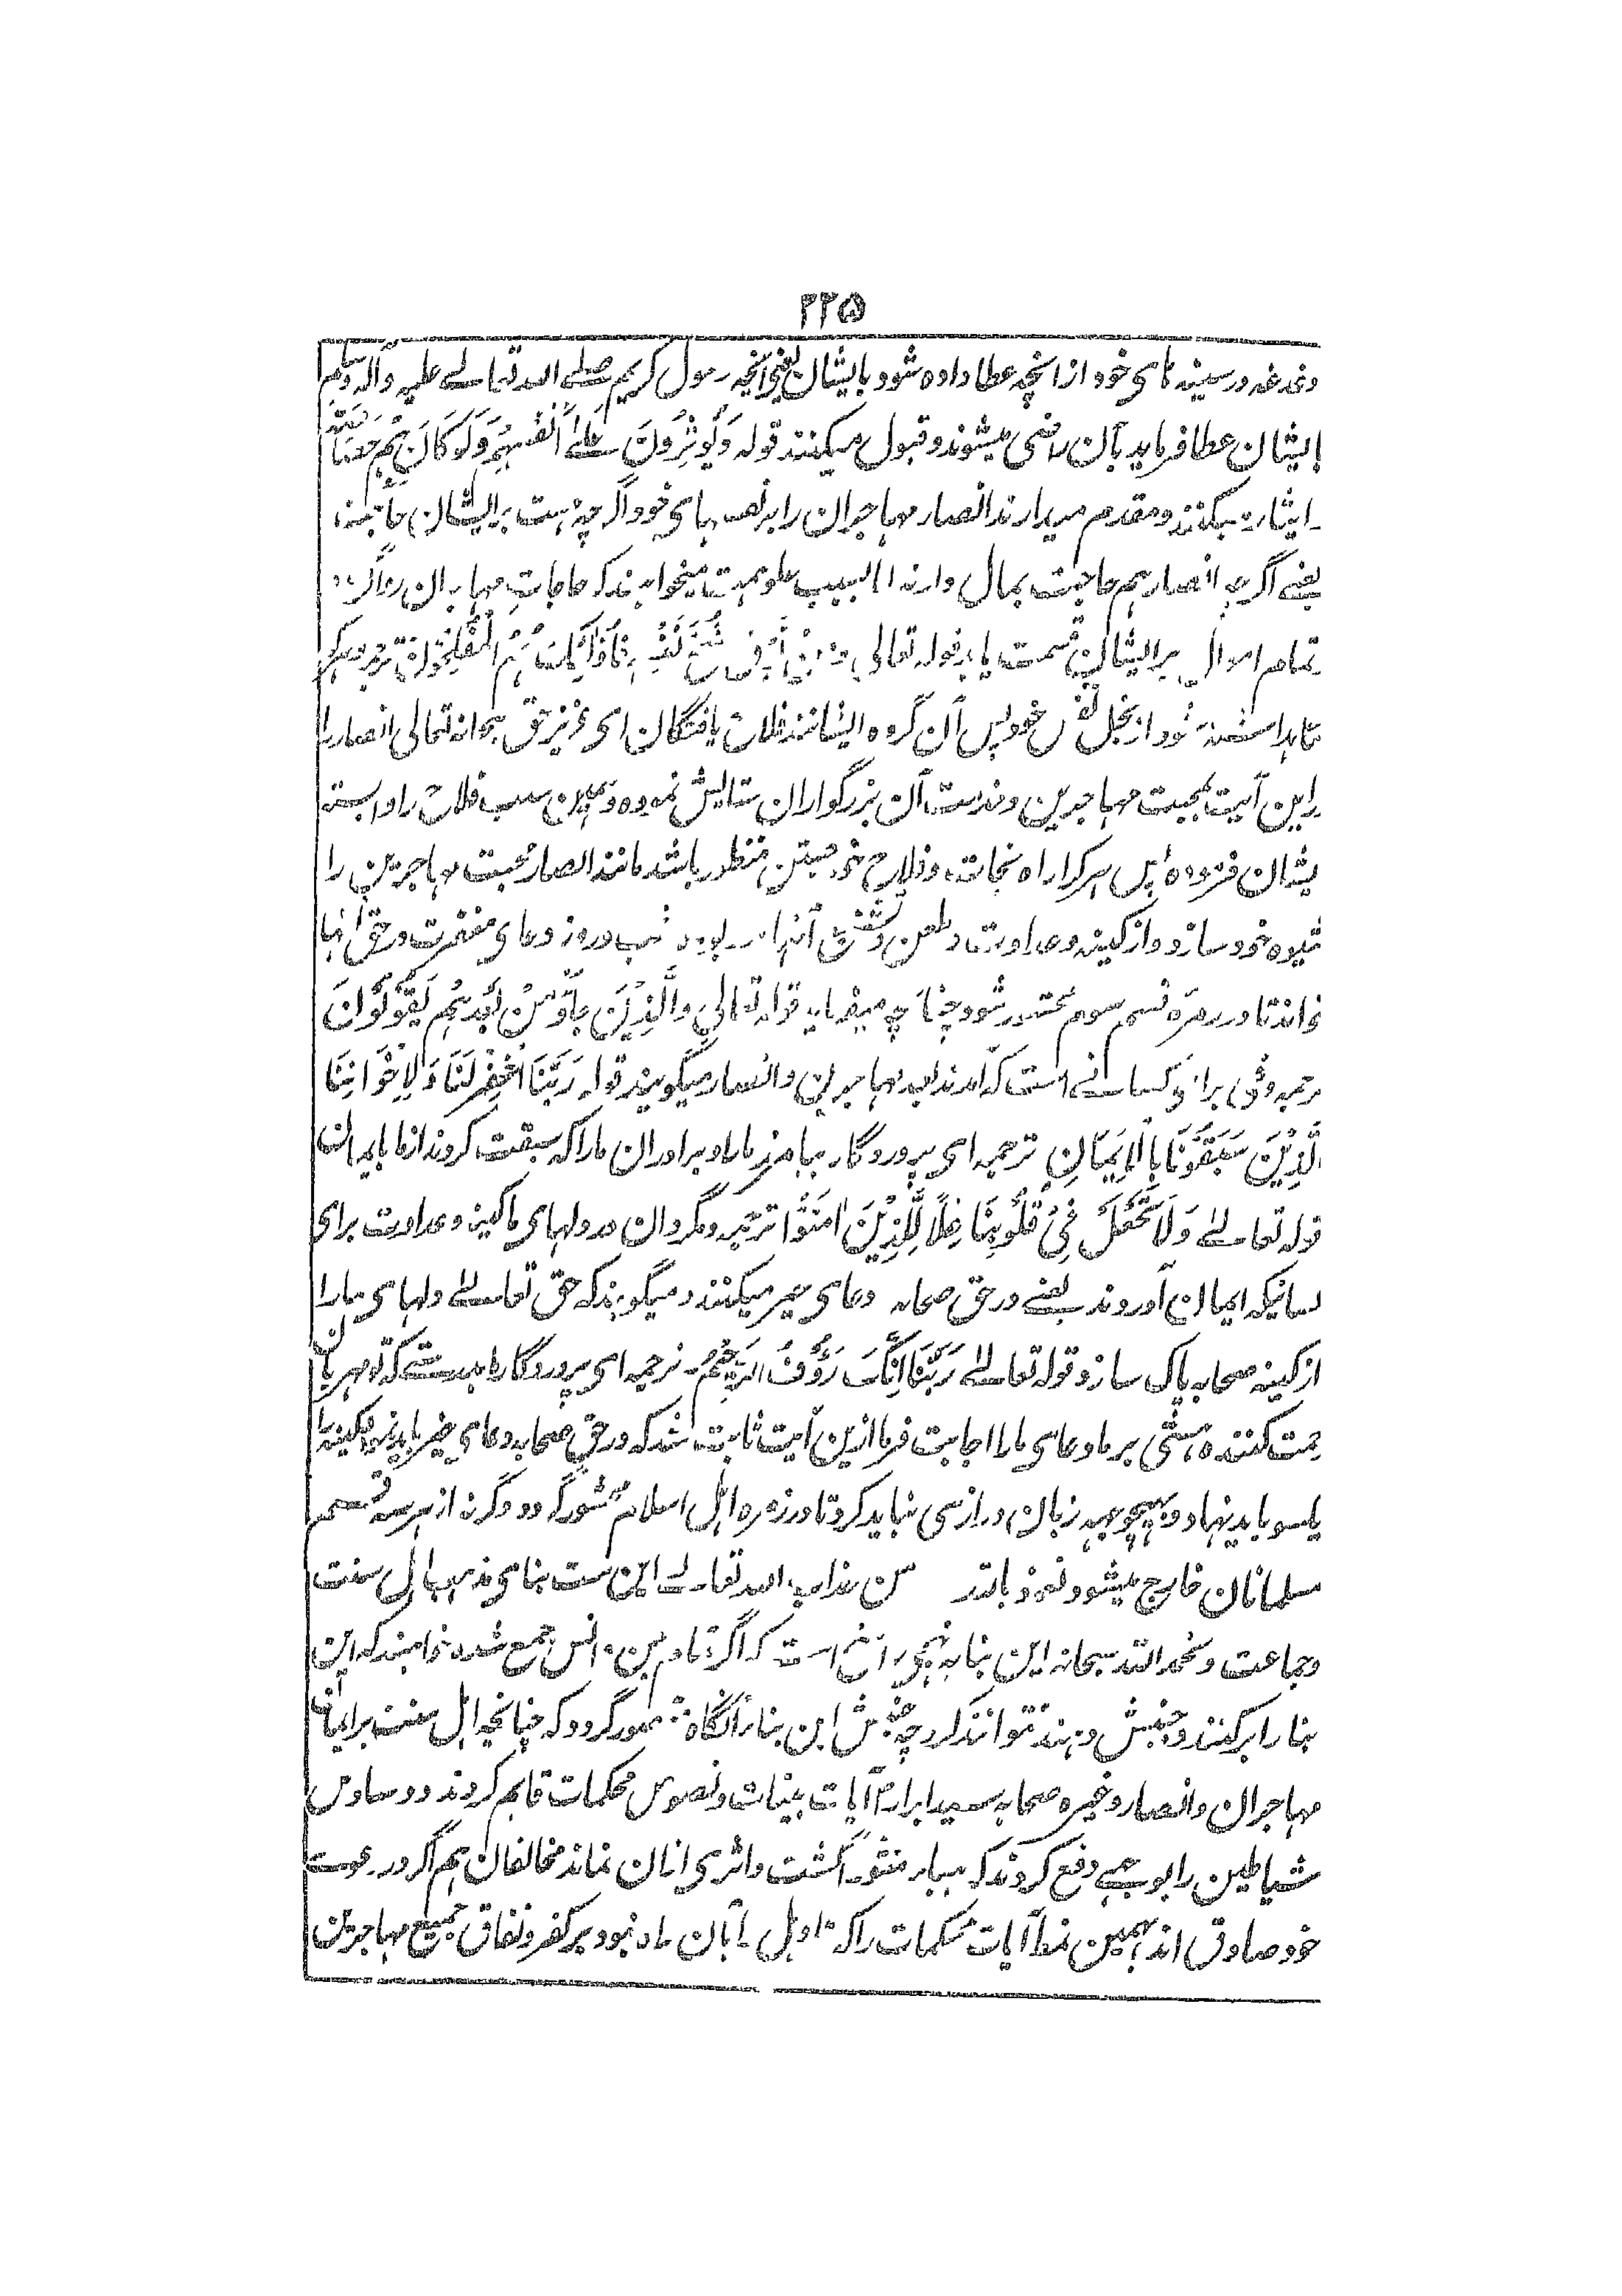 ۲۲۵
دغدغه در سینه های خود از انچه عطا داده شود بایشان یعنی انچه رسول کریم صلے الله تعالے علیه وآله وسلم
ایشان عطا فرماید بآن راضی میشوند و قبول میکنند قوله وَيُؤْثِرُونَ عَلَىٰ أَنْفُسِهِمْ وَلَوْ كَانَ بِهِمْ خَصَاصَةٌ
ایثار میکنند و مقدم میدارند انصار مهاجران را بر نفسهای خود اگرچه هست برایشان حاجت
یعنے اگرچه انصار هم حاجت بمال دارند اما بسبب علو همت میخواهند که حاجات مهاجران
تمام اموال برایشان قسمت یابد قوله تعالی وَمَنْ يُوقَ شُحَّ نَفْسِهِ فَأُولَٰئِكَ هُمُ الْمُفْلِحُونَ ترجمه و هرکه
نگاهداشته شود از بخل نفس خود پس آن گروه ایشانند فلاح یافتگان ای عزیز حق سبحانه تعالی انصار را
راین آیت بمحبت مهاجرین و خدمت آن بزرگواران ستایش نموده و همین سبب فلاح را وابسته
یشان فرموده پس هرکرا راه نجات و فلاح خود جستن منظور باشد مانند انصار محبت مهاجرین را
شیوه خود سازد و از کینه و عداوت و طعن و تشنیع آنها شب و روز دعای مغفرت در حق آنها
خواند تا در زمره قسم سوم محشور شود چنانچه میفرماید قوله تعالی والَّذِيْنَ جَاؤُوا مِنْ بَعْدِهِمْ يَقُوْلُوْنَ
رجمه و برای کسانے است که آمدند بعد مهاجرین و انصار میگویند قوله رَبَّنَا اغْفِرْ لَنَا وَلِإِخْوَانِنَا
لَّذِيْنَ سَبَقُوْنَا بِالْإِيْمَانِ ترجمه ای پروردگار بیامرز مارا و برادران مارا که سبقت کردند از ما بایمان
قوله تعالے وَلَا تَجْعَلْ فِيْ قُلُوْبِنَا غِلًّا لِّلَّذِيْنَ اٰمَنُوْا ترجمه و مگردان در دلهای ما کینه و عداوت برای
کسانیکه ایمان آوردند یعنے در حق صحابه دعای خیر میکنند و میگویند که حق تعالے دلهای مارا
از کینه صحابه پاک سازد قوله تعالے رَبَّنَا اِنَّكَ رَؤُوْفٌ الرَّحِيْمُ ـ ترجمه ای پروردگار ما بدرستے که تو مهربان
حمت کننده هستی بر ما دعای مارا اجابت فرما ازین آیت ثابت شد که در حق صحابه دعای خیر باید نمود و کینه را
یکسو باید نهاد و بهیچوجه زبان درازی نباید کرد تا در زمره اهل اسلام محشور گردد وگرنه از هرسه قسم
مسلمانان خارج میشود نعوذ بالله من عذاب الله تعالے این ست بنای مذهب اهل سنت
وجماعت و بحمد الله سبحانه این بنا بنهجی راسخ است که اگر تمام جن و انس جمع شده خواهند که این
بنا را برکنند و جنبش دهند نتوانند کرد چه جنبش این بنا آنگاه متصور گردد که چنانچه اهل سنت بر ایمان
مهاجران و انصار و غیره صحابه سعید ابرار آیات بینات و نصوص محکمات قایم کردند و وساوس
شیاطین را بوجهے دفع کردند که هباء منثورا گشت و اثری ازان نماند مخالفان هم اگر در دعوت
خود صادق اند بهمین نمط آیات محکمات را که تاویل را بآن راه نبود بر کفر و نفاق جمیع مهاجرین